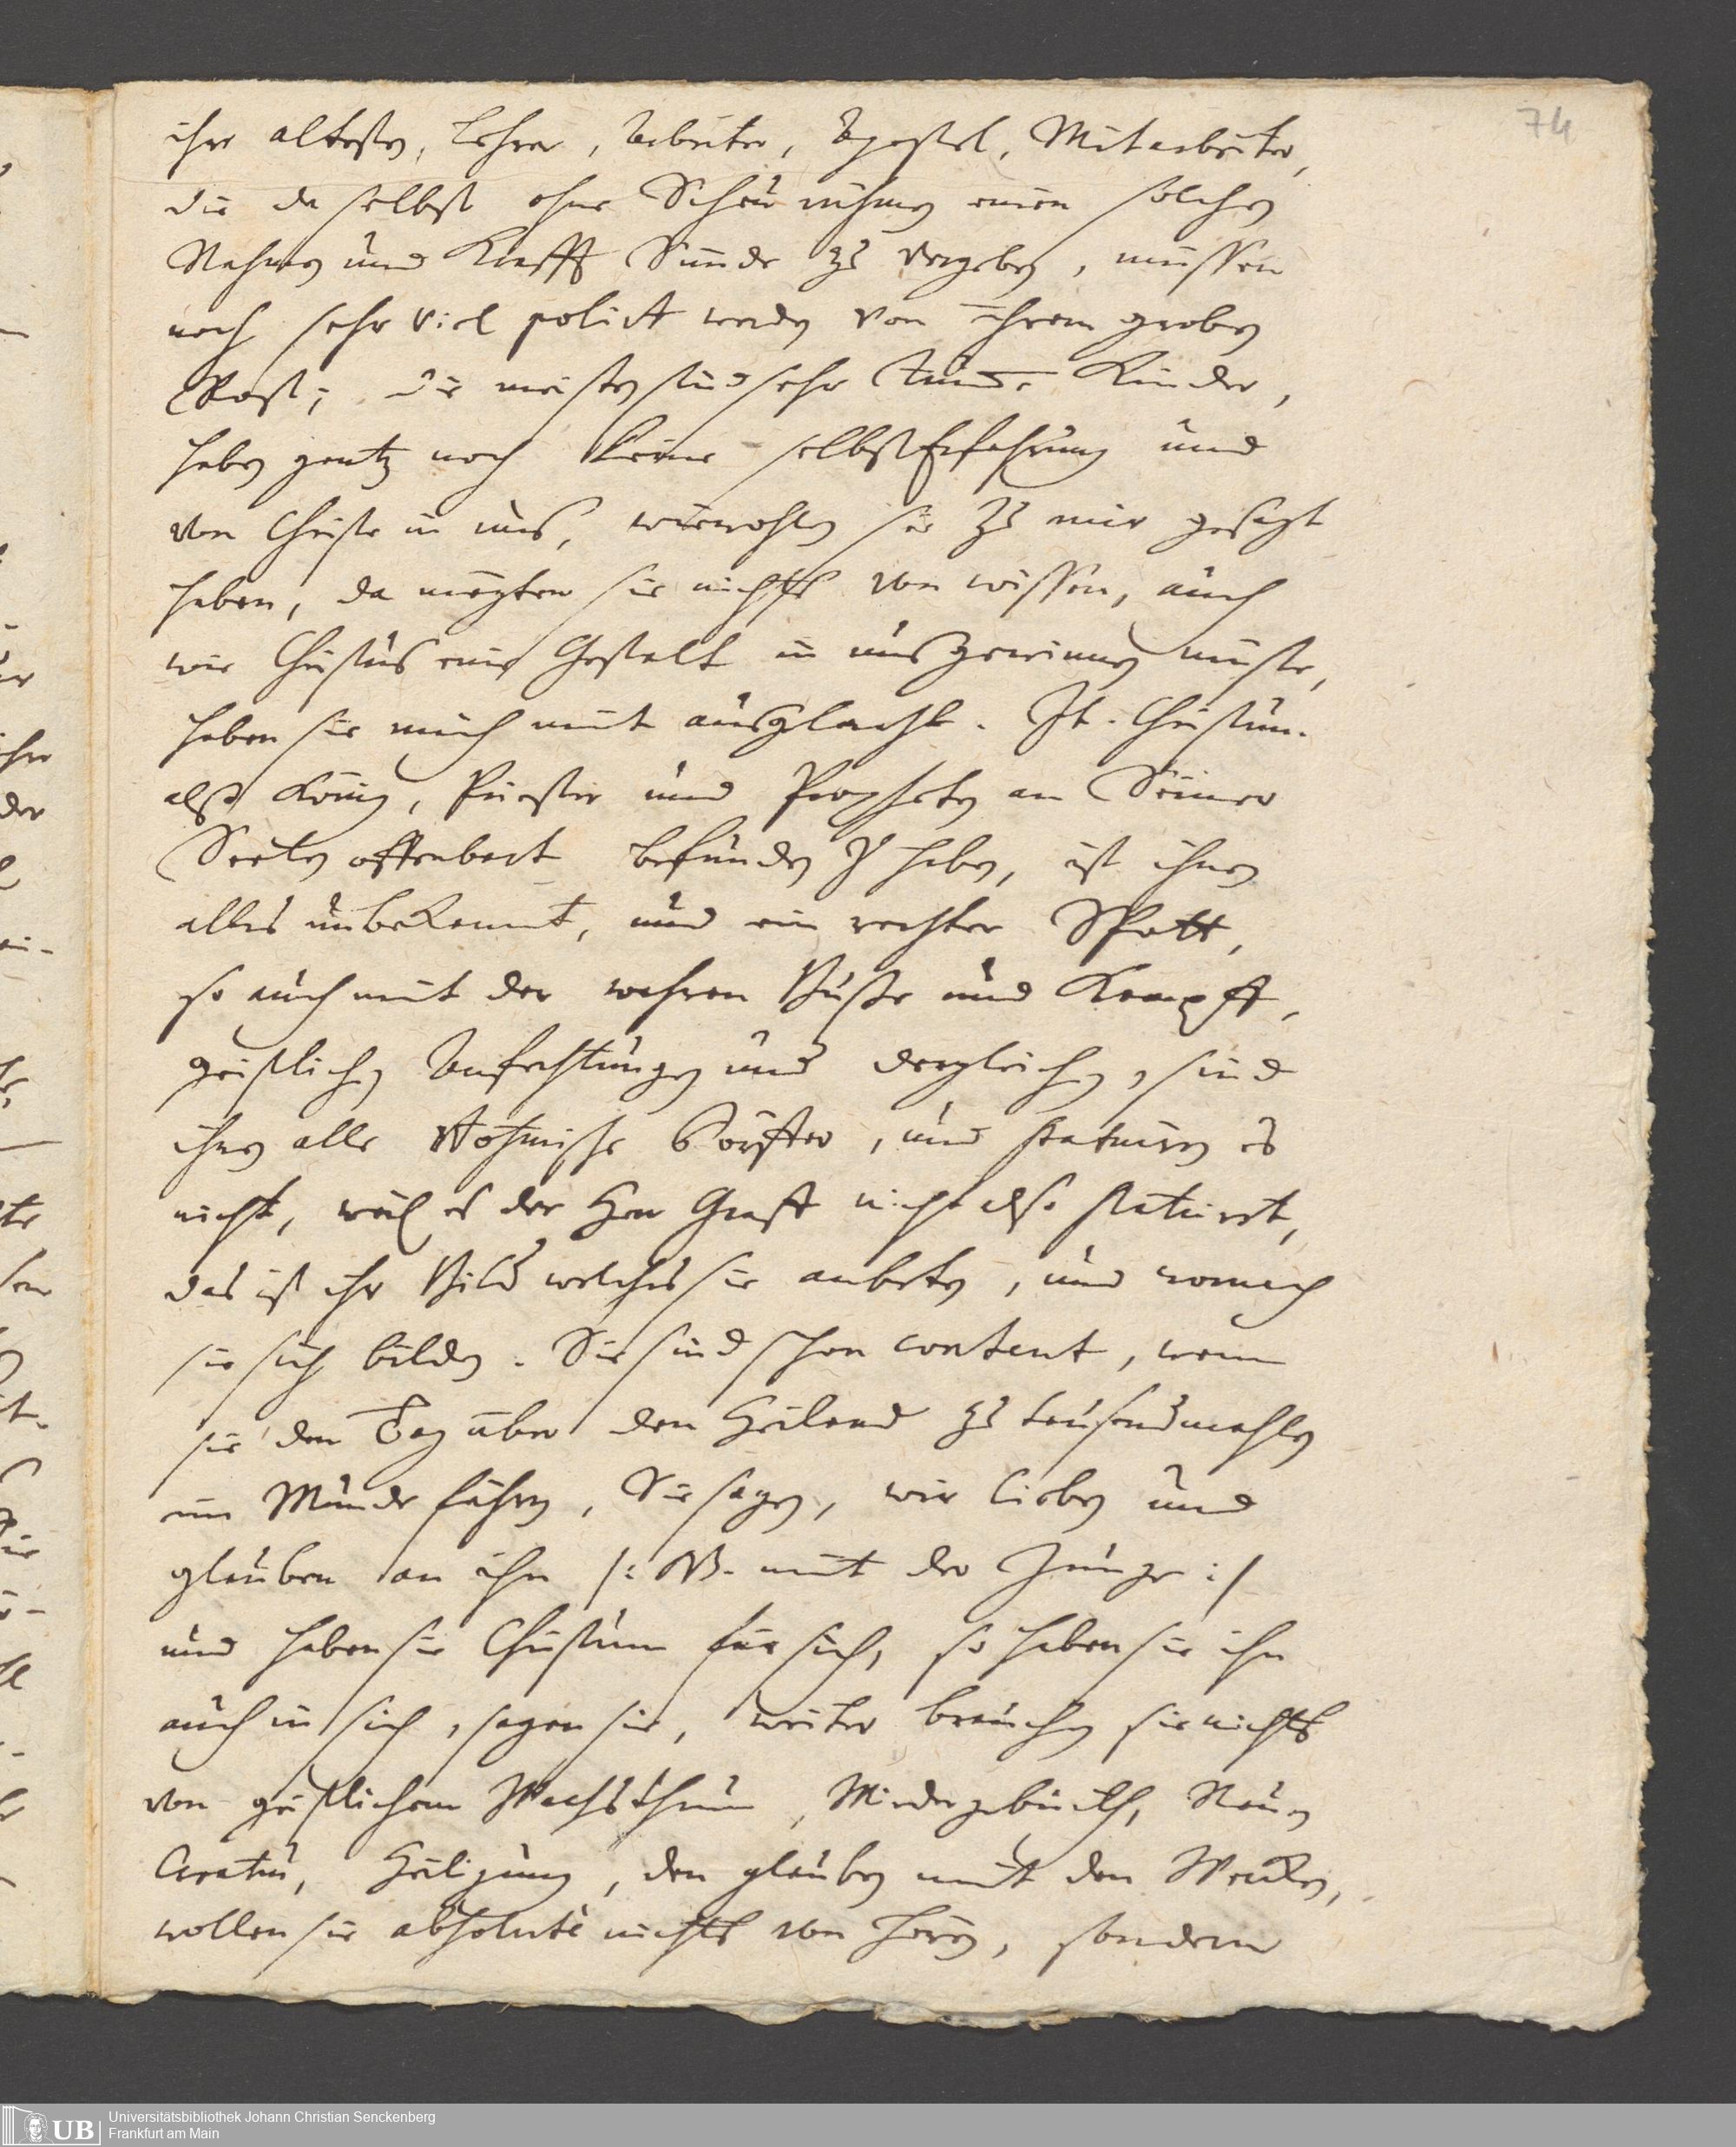 74
ihr altesten, Lehrer, Arbeiter, Apostel, Mitarbeiter,
die da selbst ohne Scheu rühmen einen solchen
Nahmen und Krafft Sünde zu vergeben, müssen
noch sehr viel polirt werden von ihrem groben
Rost; die meisten sind sehr Kinder,
haben gantz noch keine selbst Erfahrung und
von Christo in uns, wiewohlen sie zu mir gesagt
haben, da mögten sie nichts von wissen, auch
wie Christus eine Gestalt in uns gewinnen müste,
haben sie mich mit ausglacht. It. Christum
alß König, Priester und Propheten an Seiner
Seelen offenbart befunden zu haben, ist ihnen
alles unbekannt, und ein rechter Spott,
so auch mit der wahren Buße und Kampff,
geistlichen Anfechtungen und dergleichen, sind
ihnen alle Böhmische Dörffer, und statuiren es
nicht, weil es der Herr Graff nicht also statuirt,
das ist ihr Bild welches sie anbeten, und wornach
sie sich bilden. Sie sind schon content, wenn
sie den Tag über den Heiland zu tausendmahlen
im Munde führen, Sie sagen, wir lieben und
glauben an ihn /: NB. mit der Zunge :/
und haben sie Christum für sich, so haben sie ihn
auch in sich, sagen sie, weiter brauchen sie nichts
von geistlichem Wachsthum, Wiedergeburth, Neuen
Creatur, Heiligung, den glauben mit den Wercken,
wollen sie absoluté nichts von hören, sondern
Universitätsbibliothek Johann Christian Senckenberg
Frankfurt am Main
UB